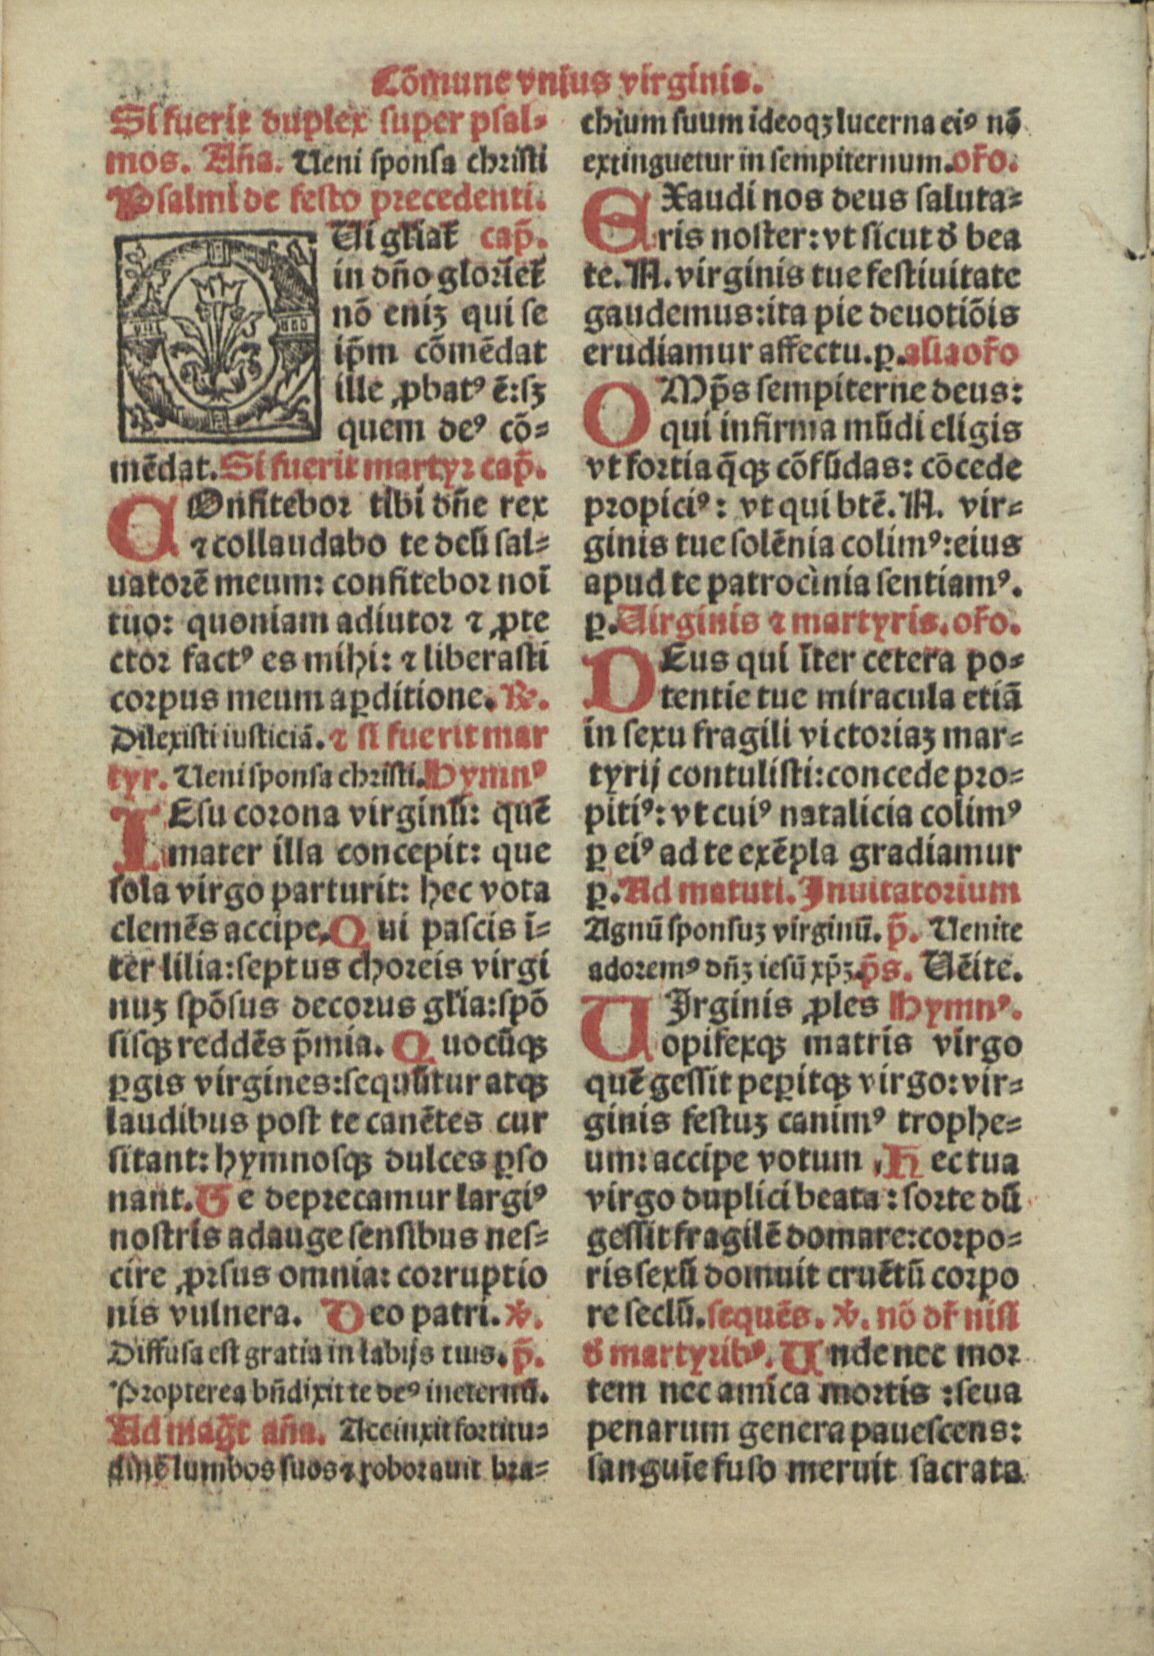 Cõmune vnius virginis.
Si fuerit duplex super psal-
mos. Aña. Ueni sponsa christi
Psalmi de festo precedenti.
QUi gl̄iat̄ cap̄.
in dño glorīet̄
nō eniʒ qui se
ip̄m cōmēdat
ille ꝓbatꝰ ē: sʒ
quem deꝰ cō-
mēdat. Si fuerit martyr cap̄.
COnfitebor tibi dñe rex
⁊ collaudabo te deū sal-
uatorē meum: confitebor noī
tuo: quoniam adiutor ⁊ ꝓte
ctor factꝰ es mihi: ⁊ liberasti
corpus meum a ꝑditione. ℟.
Dilexisti iusticiā. ⁊ si fuerit mar
tyr. Ueni sponsa christi. Hymnꝰ
IEsu corona virginū: quē
mater illa concepit: que
sola virgo parturit: hec vota
clemēs accipe. Qui pascis ī-
ter lilia: septus choreis virgi
nuʒ spōsus decorus gl̄ia: spō
sisqʒ reddēs p̄mia. Quocūqʒ
ꝑgis virgines: sequūtur atqʒ
laudibus post te canētes cur
sitant: hymnosqʒ dulces ꝑso
nant. Te deprecamur largiꝰ
nostris adauge sensibus nes-
cire ꝓrsus omnia: corruptio
nis vulnera. Deo patri. ℣.
Diffusa est gratia in labijs tuis. p̄.
Propterea bñdixit te deꝰ in eternū.
Ad mag̃t aña. Accinxit fortitu-
dinē lumbos suos ⁊ roborauit bra-
chium suum ideoqʒ lucerna eiꝰ nō
extinguetur in sempiternum. or̃o.
EXaudi nos deus saluta-
ris noster: vt sicut d̄ bea
te. N. virginis tue festiuitate
gaudemus: ita pie deuotiōis
erudiamur affectu. ꝑ. alia or̃o
OMp̄s sempiterne deus:
qui infirma mūdi eligis
vt fortia q̄qʒ cōfūdas: cōcede
propiciꝰ: vt qui btē. N. vir-
ginis tue solēnia colimꝰ: eius
apud te patrocinia sentiamꝰ.
ꝑ. Uirginis ⁊ martyris. or̃o.
DEus qui īter cetera po-
tentie tue miracula etiā
in sexu fragili victoriaʒ mar-
tyrij contulisti: concede pro-
pitiꝰ: vt cuiꝰ natalicia colimꝰ
ꝑ eiꝰ ad te exēpla gradiamur
ꝑ. Ad matuti. Inuitatorium
Agnū sponsuʒ virginū. p̄. Uenite
adoremꝰ dñʒ iesū xp̄ʒ. p̄s. Uēite.
UIrginis ꝓles Hymnꝰ.
opifexqʒ matris virgo
quē gessit peꝑitqʒ virgo: vir-
ginis festuʒ canimꝰ trophe-
um: accipe votum. Hec tua
virgo duplici beata: sorte dū
gessit fragilē domare: corpo-
ris sexū domuit cruētū corpo
re seclū. sequēs. ℣. nō dr̄ nisi
d̄ martyribꝰ. Unde nec mor
tem nec amica mortis: seua
penarum genera pauescens:
sanguīe fuso meruit sacrata